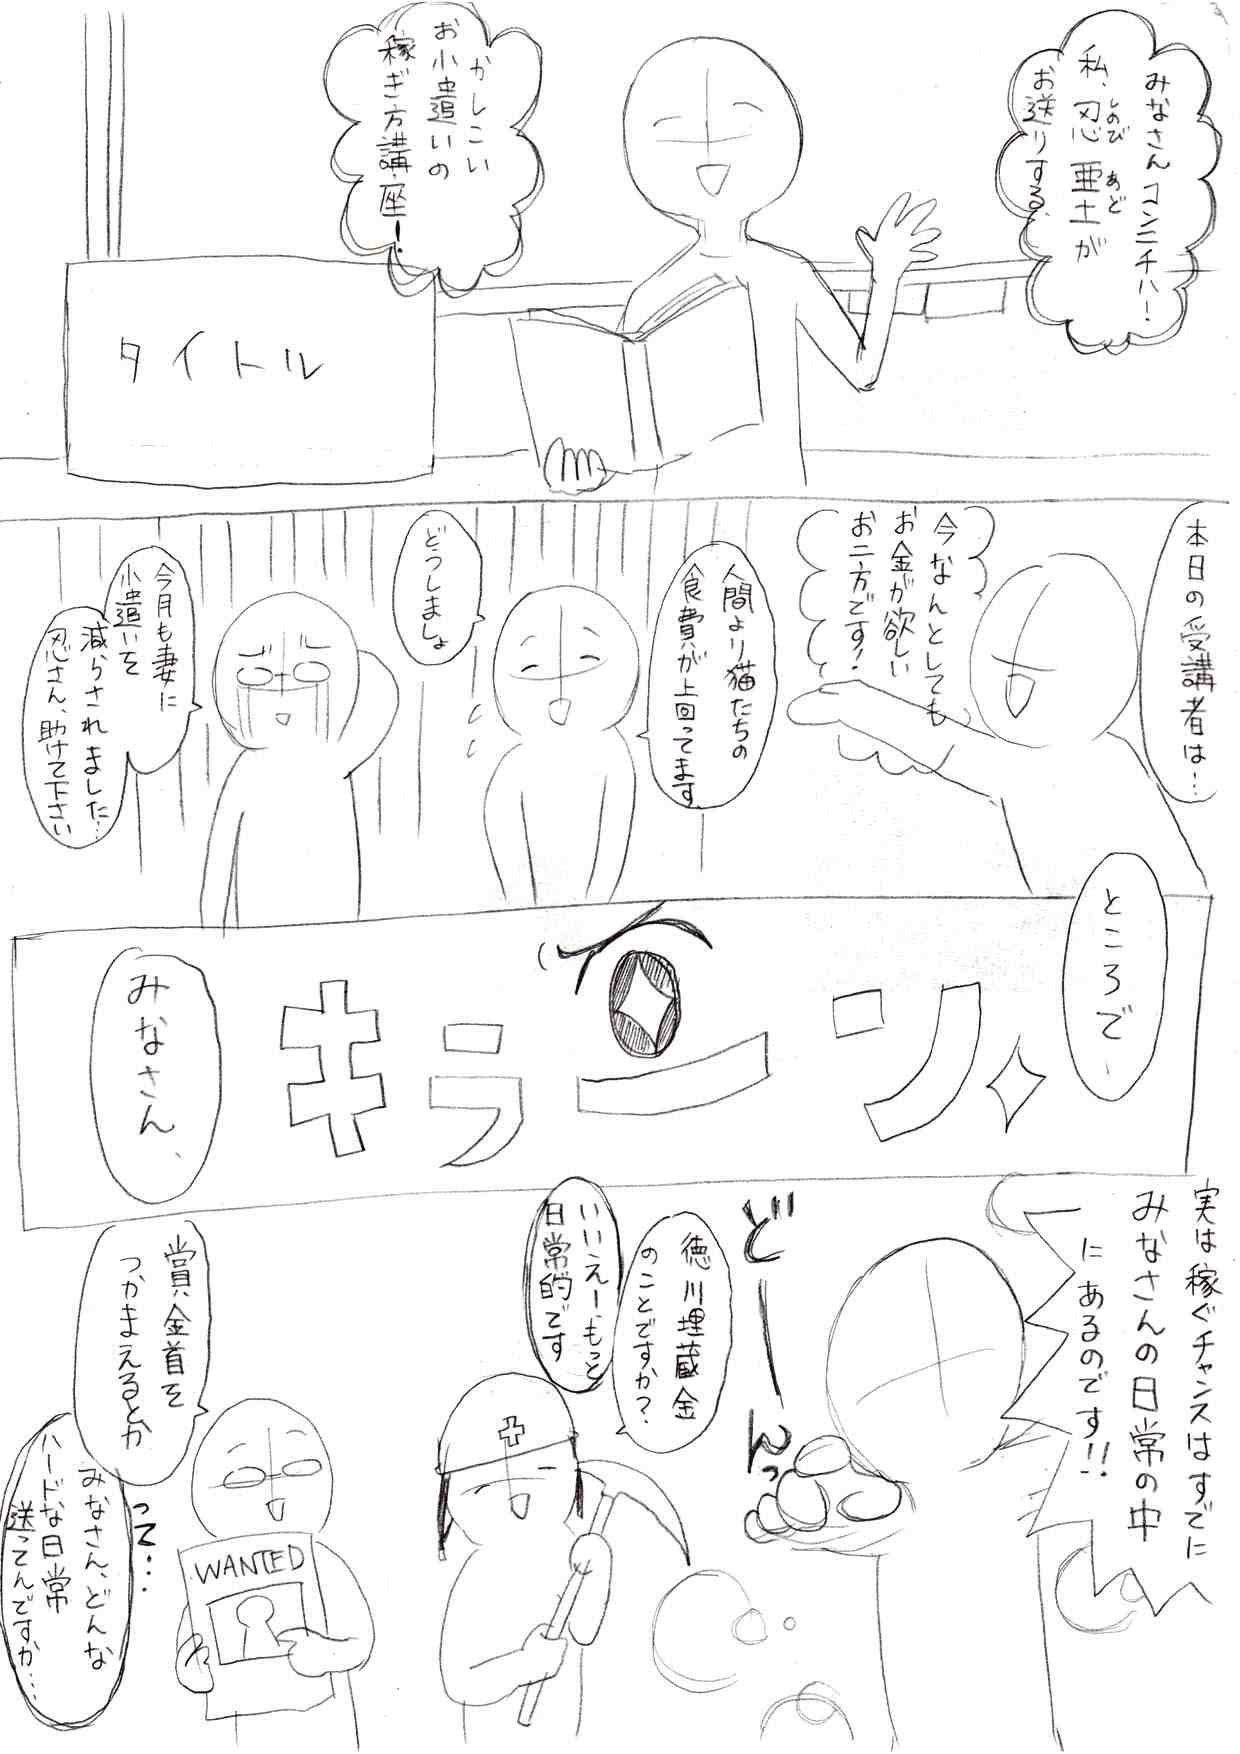 みなさんコンニチハ!
私、忍亜土が
しのび あど
お送りする、
かしこい
お小遣いの
稼ぎ方講座ー!
タイトル
本日の受講者は…
今なんとしても
お金が欲しい
お二方です!
人間より猫たちの
食費が上回ってます
どうしましょ
今月も妻に
小遣いを
減らされました…
忍さん、助けて下さい
ところで
キラーン
みなさん、
実は稼ぐチャンスはすでに
みなさんの日常の中
にあるのです!!
どーんっ
徳川埋蔵金
のことですか?
いいえー、もっと
日常的です
賞金首を
つかまえるとか
WANTED
って…
みなさん、どんな
ハードな日常
送ってんですか…